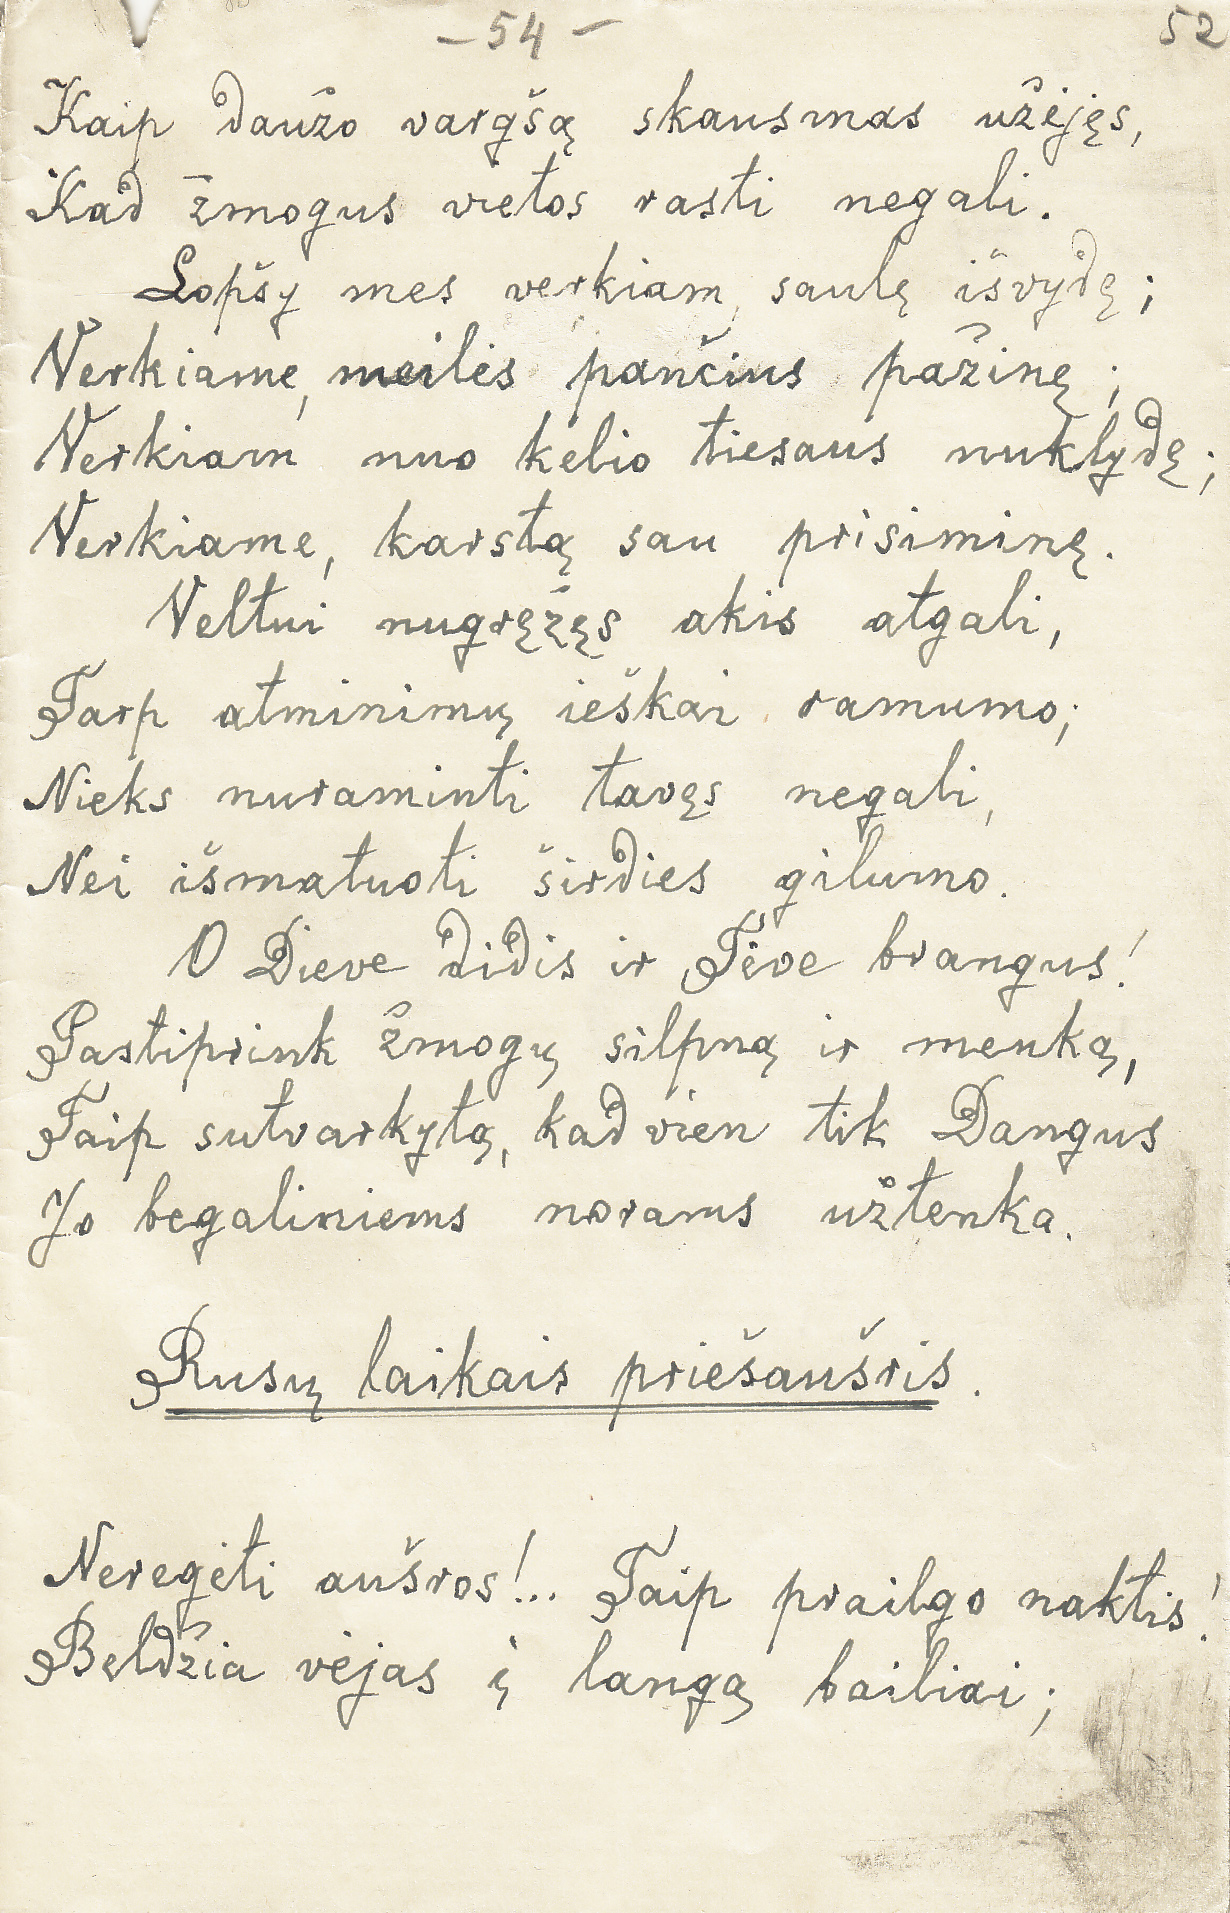 – 54 –
52
Kaip daužo vargšą skausmas užėjęs,
Kad žmogus vietos rasti negali.
Lopšy mes verkiam, saulę išvydę;
Verkiame, meilės pančius pažinę;
Verkiam nuo kelio tiesaus nuklydę;
Verkiame, karstą sau prisiminę.
Veltui nugręžęs akis atgali,
Tarp atminimų ieškai ramumo;
Nieks nuraminti tavęs negali,
Nei išmatuoti širdies gilumo.
O Dieve didis ir Tėve brangus!
Pastiprink žmogų silpną ir menką,
Taip sutvarkytą, kad vien tik Dangus
Jo begaliniems norams užtenka.
Rusų laikais priešaušris.
Neregėti aušros!... Taip prailgo naktis!
Bęldžia vėjas į langą bailiai;